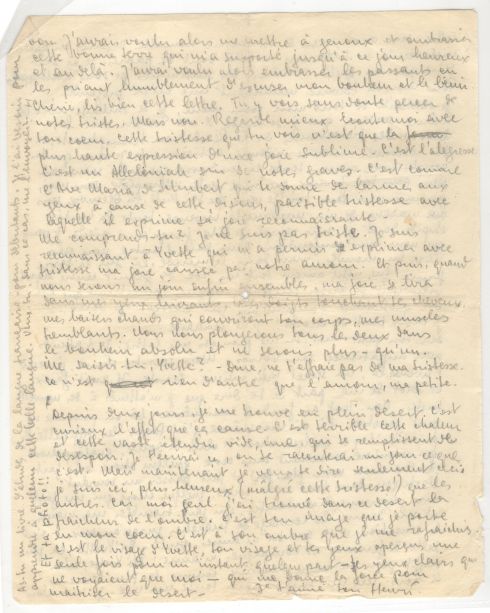 vou J'aurais voulu alors me mettre à genoux et embrasser
cette bonne terre qui m'a supporté jusqu'à ce jour heureux
et au delà. J'aurai voulu alors embrasser les passants en
les priant humblement d'excuser mon bonheur et le bénir.
Cherie, lis bien cette lettre. Tu y vois sans doute percer de
notes tristes. Mais non. Regarde mieux. Ecoute moi avec
ton coeur. Cette tristesse que tu vois n'est que la
plus haute expression d'une joie sublime. C'est l'alegresse
c'est un Alleloniale de notes graves. C'est comme
l'Ave Maria de Schubert qui te donne de larmes aux
yeux à cause de cette paisible tristesse avec
laquelle il exprime sa joie reconnaissante.
Me comprends-tu? Je ne suis pas triste. Je suis
reconnaissant à Yvette qui m'a permis de exprimer avec
tristesse ma joie causée par notre amour. Et puis, quand
nous serons un jour enfin ensembles, ma joie se lira
dans mes yeux mes doigts touchant tes cheveux,
mes baisers chauds qui couvriront ton corps, mes muscles
tremblants. Nous nous plongerons tous les deux dans
le bonheur absolu et ne serons plus qu'un.
Me saisis-tu, Yvette? - Donc, ne t'effraie pas de ma tristesse.
Ce n'est rien d'autre que l'amour, ma petite.
Depuis deux jours, je me trouve en plein désert. C'est
curieux l'effet que ça cause. C'est terrible cette chaleur
et cette vaste étendue vide, nue, qui se remplissent de
desespoir. Je t'écrirai ou te raconterai un jour ce que
c'est. Mais maintenant je veux te dire seulement ceci
je suis ici, plus heureux (malgré cette tristesse!) que les
autres. Car moi seul j'ai trouvé dans ce desert la
fraicheur de l'ombre. C'est ton image que je porte
en mon coeur. C'est à son ombre que je me rafraichis.
C'est le visage d'Yvette, ton visage et tes yeux aperçus une
seule fois pour un instant, quelque part - tes yeux clairs qui
ne voyaient que moi - qui me donne la force pour
maitriser le desert - Je t'aime ton Henri
As-tu un livre d'étude de la langue française pour débutants. J'ai besoin pour
apprendre à quelqu'un cette belle langue. Veux-tu dans ce cas me l'envoyer?
Et ta photo!!